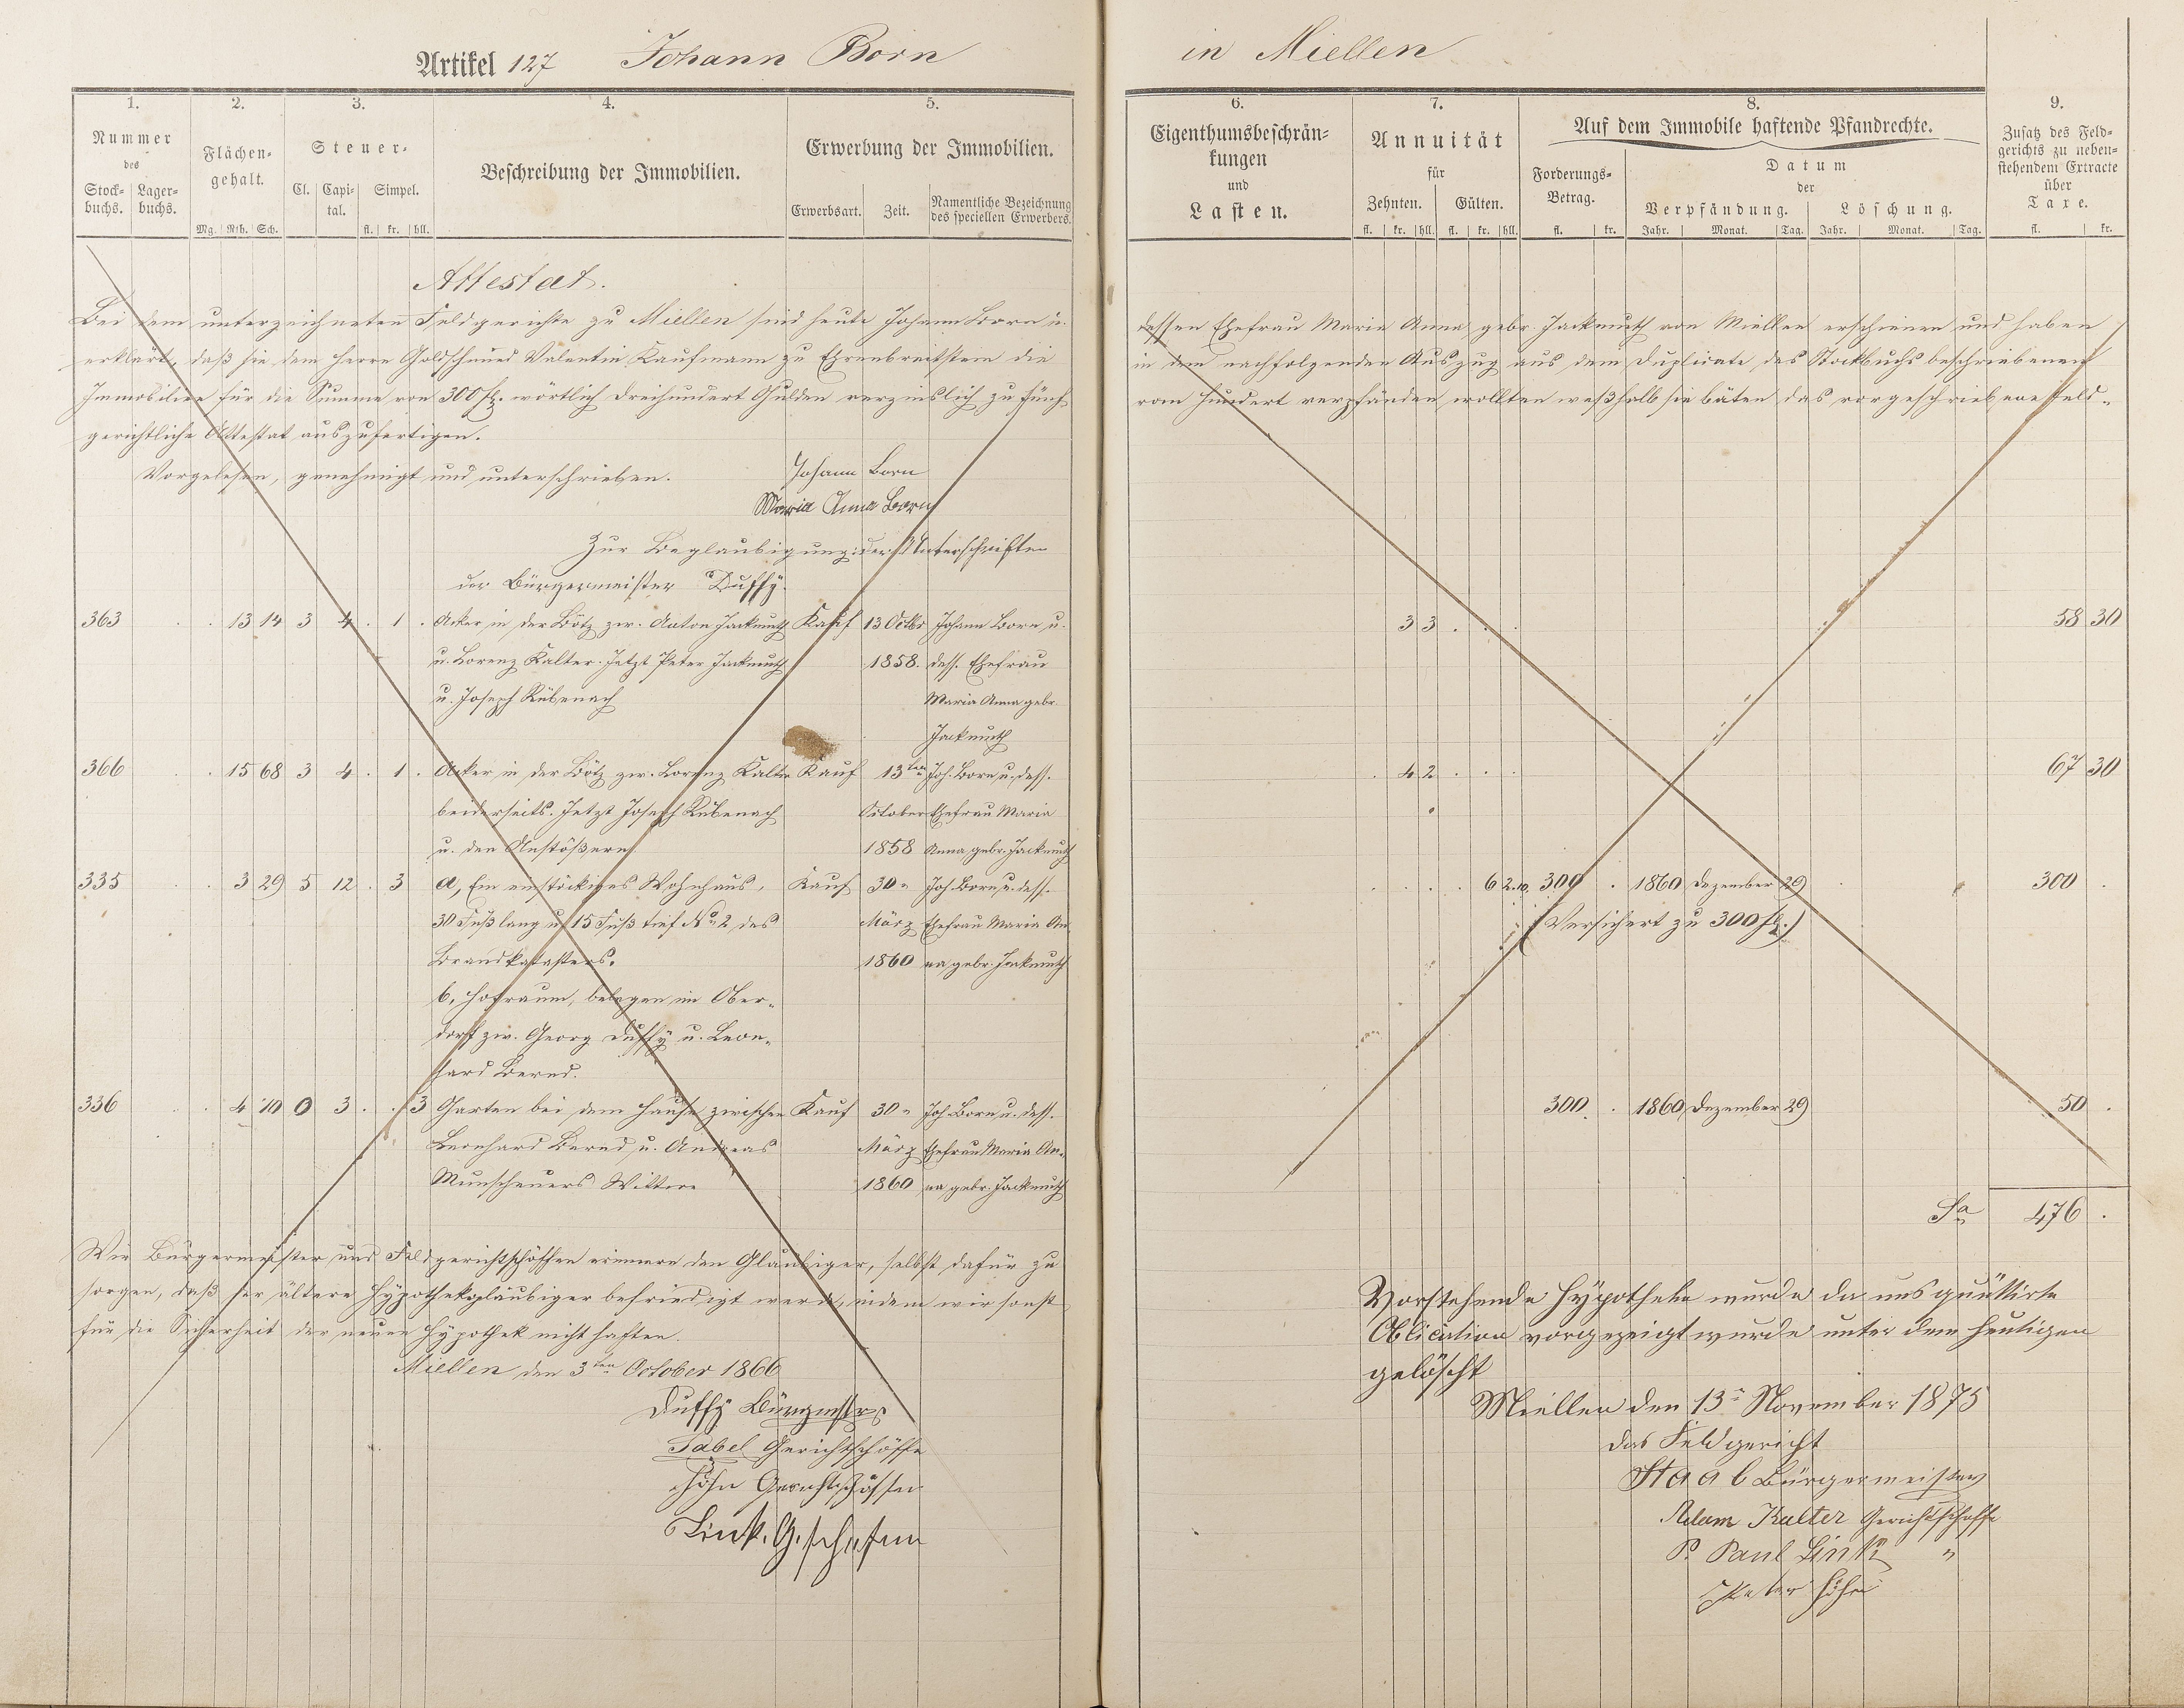 Artikel 127 Johann Born
in Miellen
1. 2. 3. 4. 5.
Nummer des Stock-buchs. Lager-buchs.
Flächen-gehalt. Mg. Rth. Sch.
Steuer- Cl. Capi-tal. Simpel. fl. kr. hll.
Beschreibung der Immobilien.
Erwerbung der Immobilien.
Erwerbsart. Zeit. Namentliche Bezeichnung des speciellen Erwerbers.
6. 7. 8. 9.
Eigenthumsbeschrän-kungen und Lasten.
Annuität für Zehnten. Gülten. fl. kr. hll. fl. kr. hll.
Auf dem Immobile haftende Pfandrechte.
Forderungs-Betrag. fl. kr.
Datum der Verpfändung. Löschung.
Jahr. Monat. Tag. Jahr. Monat. Tag.
Zusatz des Feld-gerichts zu neben-stehendem Extracte über Taxe. fl. kr.
Attestat.
Bei dem unterzeichneten Feldgerichte zu Miellen sind heute Johann Born u. dessen Ehefrau Maria Anna gebr. Jackmuth von Miellen erschienen und haben
erklärt, daß sie dem Herrn Goldschmied Valentin Kaufmann zu Ehrenbreitstein die in dem nachfolgenden Auszug aus dem Duplicate des Stockbuchs beschriebenen
Immobilien für die Summe von 300 fl. wörtlich dreihundert Gulden verzinslich zu fünf vom Hundert verpfänden wollten weßhalb sie bäten das vorgeschriebene feld-
gerichtliche Attestat auszufertigen.
Vorgelesen, genehmigt und unterschrieben. Johann Born
Maria Anna Born
Zur Beglaubigung der Unterschriften
der Bürgermeister Duffy.
363 13 14 3 4 . 1 . Acker in der Bötz zw. Anton Jackmuth Kauf 13 Octbr Johann Born u. 3 3 . 58 30
u. Lorenz Kalter. Jetzt Peter Jackmuth 1858. dess. Ehefrau
u. Joseph Rübenach Maria Anna gebr.
Jackmuth
366 15 68 3 4 . 1 . Acker in der Bötz zw. Lorenz Kalter Kauf 13ten Joh. Born u. dess. 4 2 . 67 30
beiderseits. Jetzt Joseph Rübenach October Ehefrau Maria
u. den Anstößern 1858 Anna gebr. Jackmuth
335 3 29 5 12 . 3 a, Ein einstöckiges Wohnhaus, Kauf 30 " Joh. Born u. dess. 6 2 10 300 . 1860 Dezember 29 300 .
30 Fuß lang u. 15 Fuß tief No 2 des März Ehefrau Maria An- (Versichert zu 300 fl.)
Brandkatasters. 1860 na gebr. Jackmuth
b, Hofraum, belegen im Ober-
dorf zw. Georg Duffy u. Leon-
hard Bernd.
336 4 10 0 3 . . 3 Garten bei dem Hause zwischen Kauf 30 " Joh. Born u. dess. 300 . 1860 Dezember 29 50 .
Leonhard Bernd u. Andreas März Ehefrau Maria An-
Munscheuers Wittwe 1860 na gebr. Jackmuth
Sa 476 .
Wir Bürgermeister und Feldgerichtschöffen erinnern den Gläubiger, selbst dafür zu
sorgen, daß der ältere Hypothekgläubiger befriedigt werde, indem wir sonst
für die Sicherheit der neuen Hypothek nicht haften.
Miellen den 3ten October 1866
Duffy Bürgmstr
Sabel Gerichtschöffe
Höhn Gerichtschöffen
Link. G. schefen
Vorstehende Hypotheke wurde da uns quittirte
Oblication vorgezeigt wurde unter dem heutigen
gelöscht
Miellen den 13 " November 1875
Das Feldgericht
Staab Bürgermeister
Adam Kalter Gerichtschöffe
P. Paul Link "
Peter Höhn